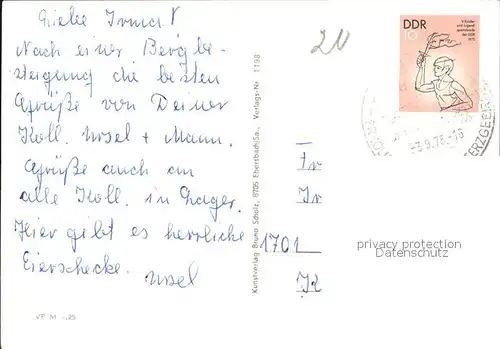 Liebe Irma!
Nach einer Bergbe-
steigung die besten
Grüße von Deiner
Koll. Ursel + Mann.
Grüße auch an
alle Koll. im Lager.
Hier gibt es herrliche
Eierschecke. Ursel
VF M -,25
Kunstverlag Bruno Scholz, 8705 Ebersbach/Sa., Verlags-Nr. 1198
20
DDR
10
V. Kinder-
und Jugend-
spartakiade
der DDR
1975
-3.9.75-16
ERZGEB
Fr
Ir
1701
Jü
privacy protection
Datenschutz